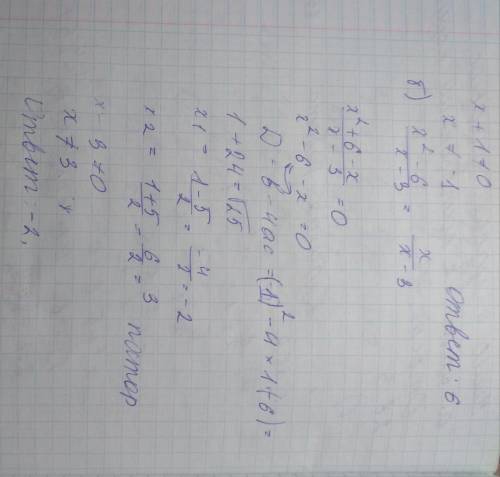 x + 1 ≠ 0
x ≠ -1 Ответ: 6
б) x² - 6 / x - 3 = x / x - 3
x² + 6 - x / x - 3 = 0
x² - 6 - x = 0
D = b - 4ac = (1)² - 4 × 1 + 6) =
1 + 24 = √25
x1 = 1 - 5 / 2 = -4 / 2 = -2
x2 = 1 + 5 / 2 = 6 / 2 = 3
x - 3 ≠ 0
x ≠ 3
Ответ -2,